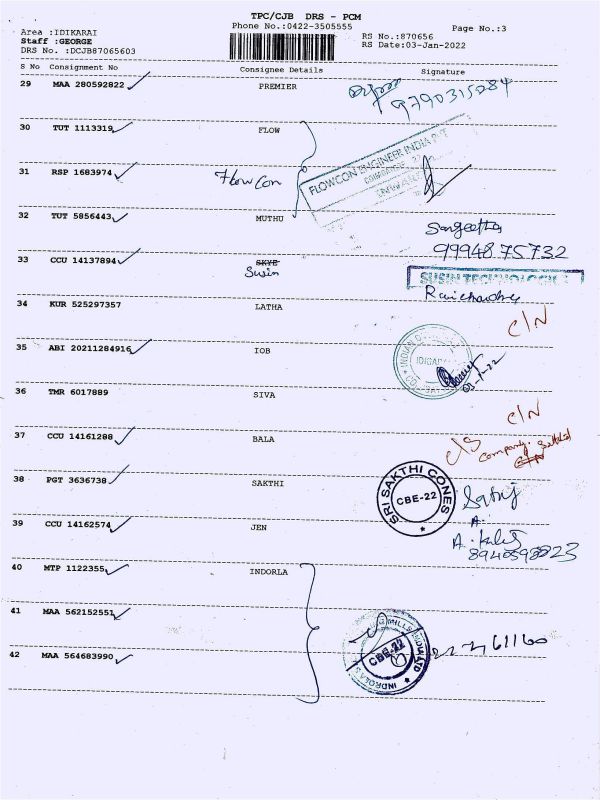 TPC/CJB DRS - PCM
Phone No.:0422-3505555
Page No.:3
Area :IDIKARAI
Staff :GEORGE
DRS No. :DCJB87065603
RS No.:870656
RS Date:03-Jan-2022
S No Consignment No Consignee Details Signature
29 MAA 280592822 PREMIER
9790315284
30 TUT 1113319 FLOW
FLOWCON ENGINEER INDIA P
31 RSP 1683974 Flowcon
32 TUT 5856443 MUTHU
Sangeetha
9994875732
33 CCU 14137894 SKYE
Susin
SUSIN TECHNOLOG
34 KUR 525297357 LATHA
C/N
35 ABI 20211284916 IOB
INDIAN
IDIGA
36 TMR 6017889 SIVA
C/N
37 CCU 14161288 BALA
Company
38 PGT 3636738 SAKTHI
SRI SAKTHI CONES
CBE-22
39 CCU 14162574 JEN
A.
40 MTP 1122355 INDORLA
41 MAA 562152551
MILLS INDIA LTD
CBE-22
42 MAA 564683990